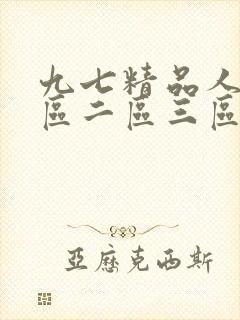 九七精品人
區二區三區
亞歷克西斯